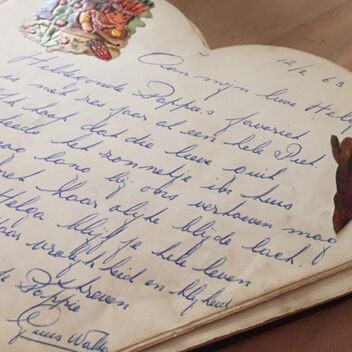 12/2 63
Aan mijn lieve Helg
Hildegonde Pappa's favoriet
is met zes jaar al een hele Piet.
hoop dat die lieve guit
het zonnetje in huis
lang bij ons vertoeven mag
Haar olijke blijde lach.
Helga blijf je hele leven
vrolijkheid en blijheid
schreven
Pappie
Guus Walt